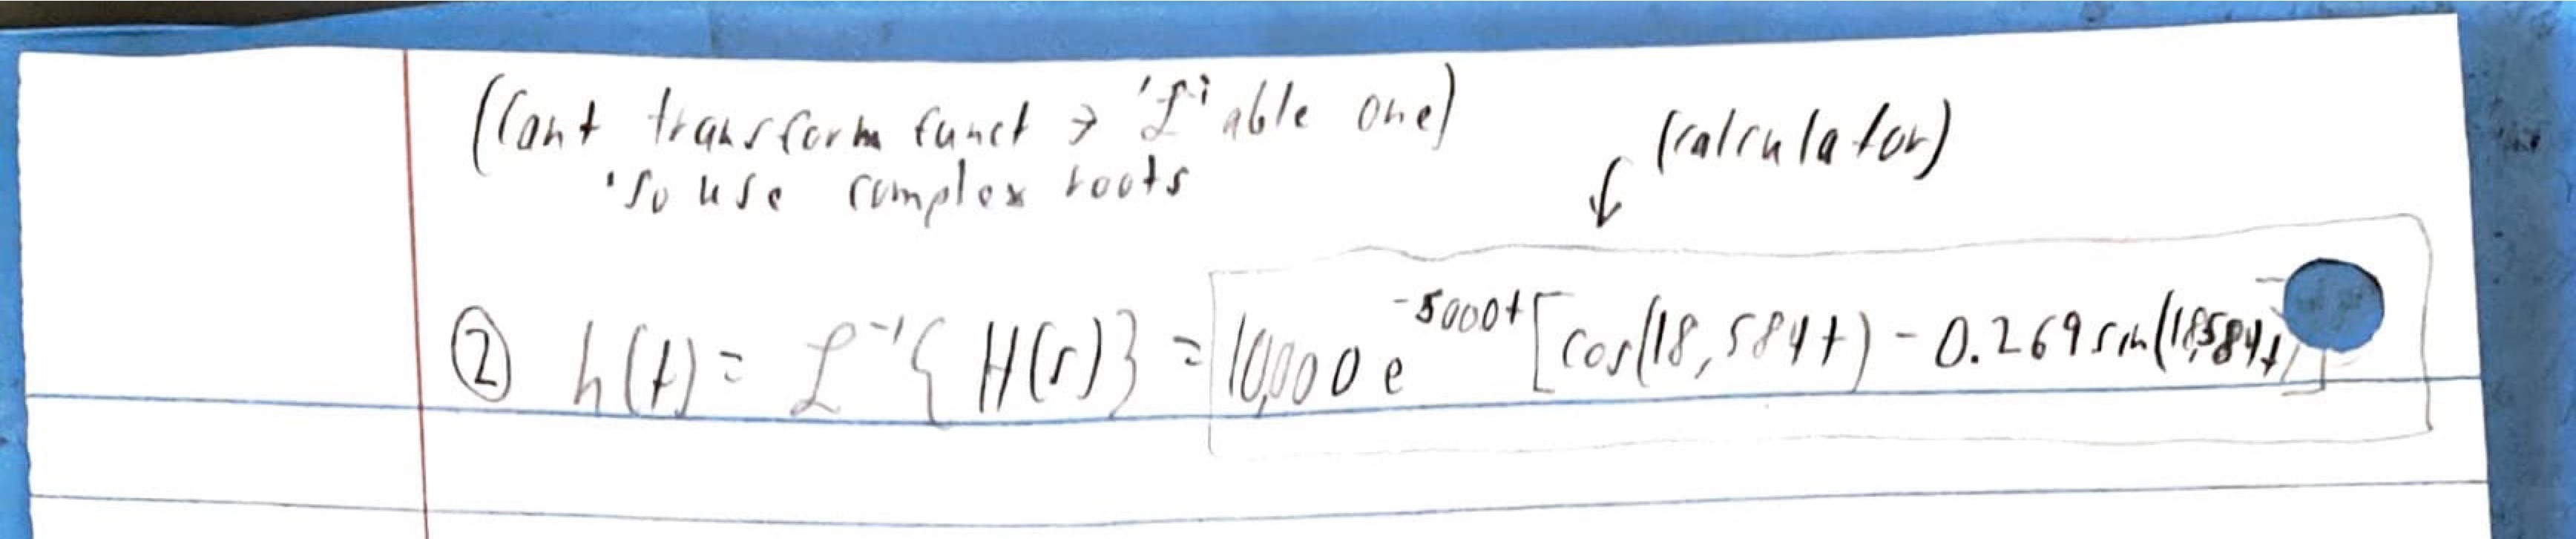 (Cant transform funct → 'ℒ' able one)
'so use complex roots
(calculator)
② h(t) = ℒ⁻¹{H(s)} = 10,000 e^-5000t [cos(18,584t) - 0.269 sin(18,584t)]